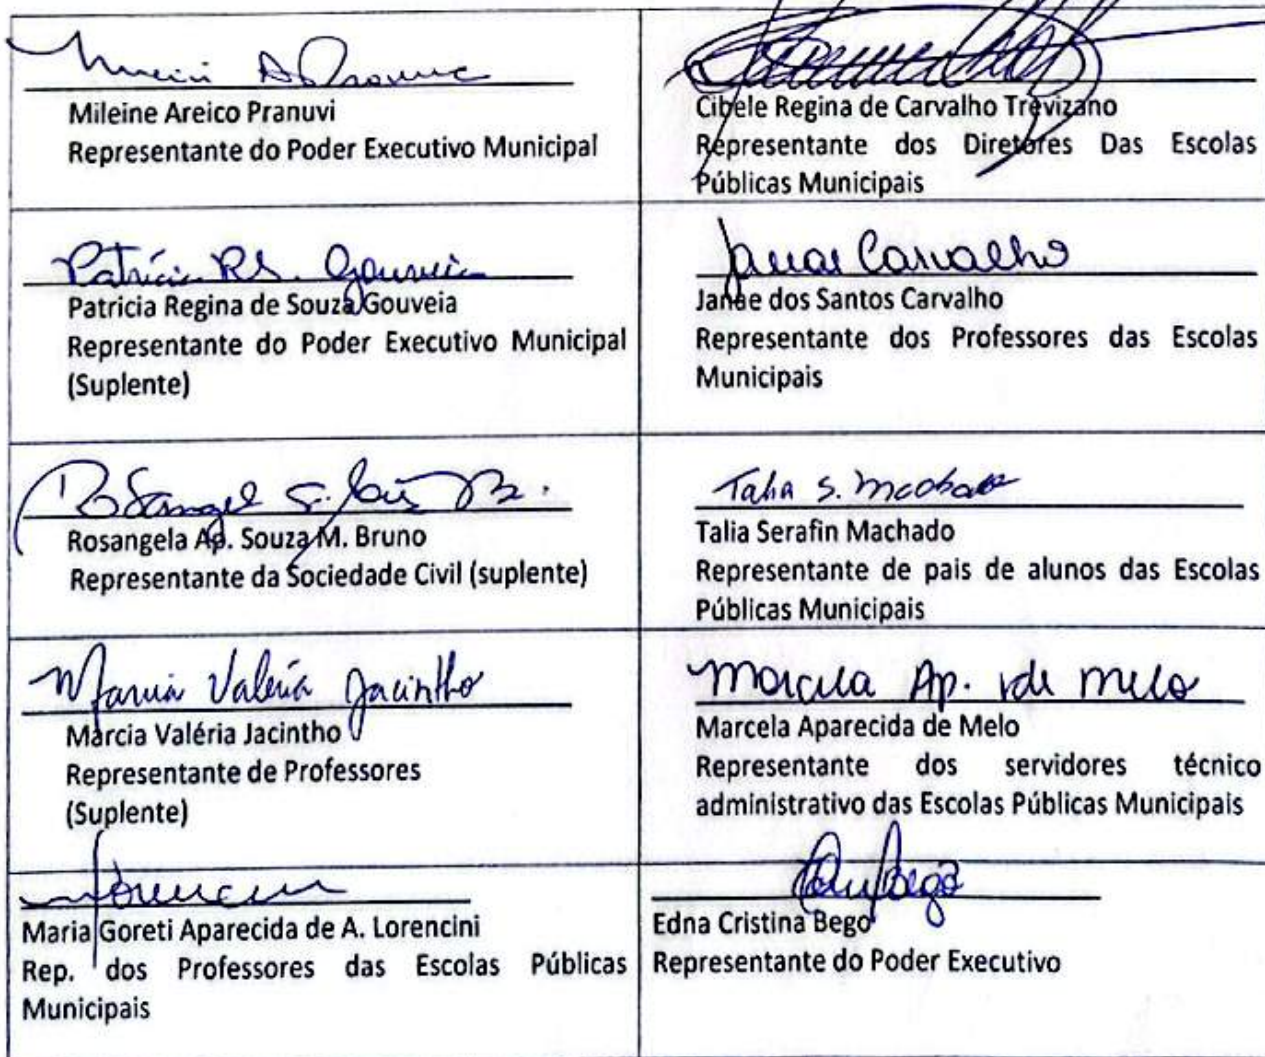 Mileine Areico Pranuvi
Representante do Poder Executivo Municipal
Cibele Regina de Carvalho Trevizano
Representante dos Diretores Das Escolas
Públicas Municipais
Patrícia RS. Gouveia
Patricia Regina de Souza Gouveia
Representante do Poder Executivo Municipal
(Suplente)
Janae Carvalho
Janae dos Santos Carvalho
Representante dos Professores das Escolas
Municipais
Rosangela Ap. Souza M. Bruno
Representante da Sociedade Civil (suplente)
Talia S. Machado
Talia Serafin Machado
Representante de pais de alunos das Escolas
Públicas Municipais
Marcia Valéria Jacintho
Marcia Valéria Jacintho
Representante de Professores
(Suplente)
Marcela Ap. de Melo
Marcela Aparecida de Melo
Representante dos servidores técnico
administrativo das Escolas Públicas Municipais
Lorencini
Maria Goreti Aparecida de A. Lorencini
Rep. dos Professores das Escolas Públicas
Municipais
Edna Cristina Bego
Representante do Poder Executivo